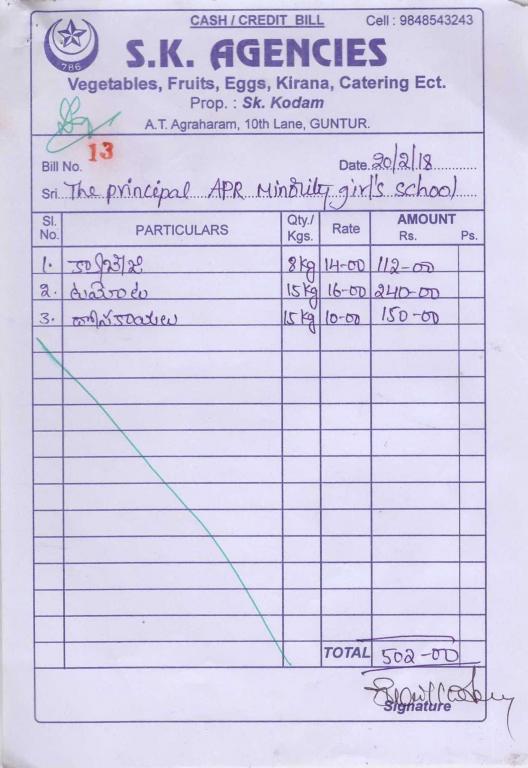 CASH / CREDIT BILL Cell : 9848543243
786
S.K. AGENCIES
Vegetables, Fruits, Eggs, Kirana, Catering Ect.
Prop. : Sk. Kodam
A.T. Agraharam, 10th Lane, GUNTUR.
Bill No. 13 Date 20/2/18
Sri The principal APR Minority girl's school
Sl. No. PARTICULARS Qty./ Kgs. Rate AMOUNT Rs. Ps.
1. క్యాబేజి 8kg 14-00 112-00
2. టమాటాలు 15kg 16-00 240-00
3. 15kg 10-00 150-00
TOTAL 502-00
Signature